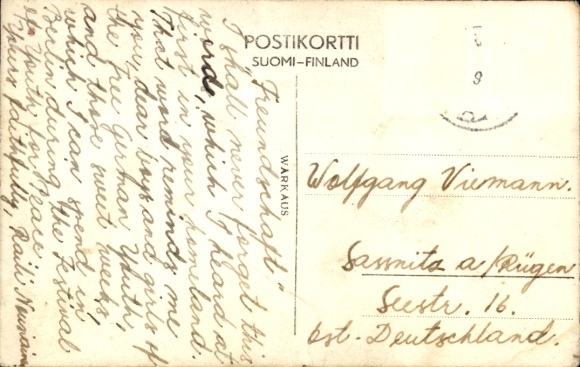 POSTIKORTTI
SUOMI-FINLAND
WARKAUS
Freundschaft"
I shall never forget this
word, which I heard at
first in your homeland.
That word reminds me
you, dear boys and girls of
the Free German Youth,
and those sweet weeks,
which I can spend in
Berlin during the Festival
of Youth for Peace.
Yours faithfully, Raili
Wolfgang Viermann.
Sassnitz a/Rügen
Seestr. 16.
Ost-Deutschland.